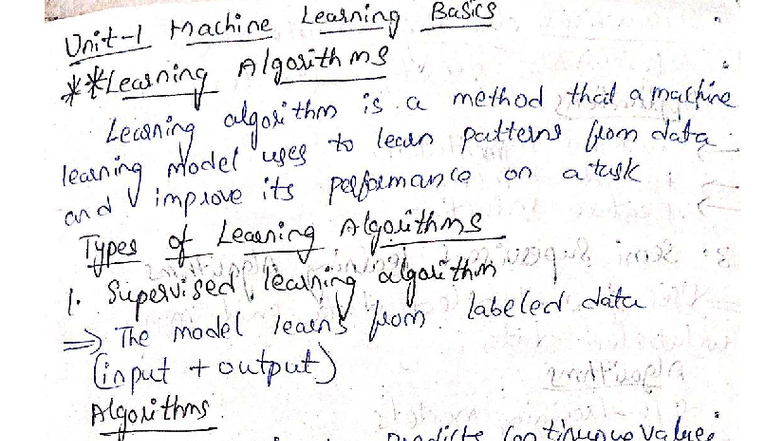 Unit-1 Machine Learning Basics
**Learning Algorithms
Learning algorithm is a method that a machine
learning model uses to learn patterns from data
and improve its performance on a task.
Types of Learning Algorithms
1. Supervised learning algorithm
⇒ The model learns from labeled data
(input + output)
Algorithms
predicts continuous values